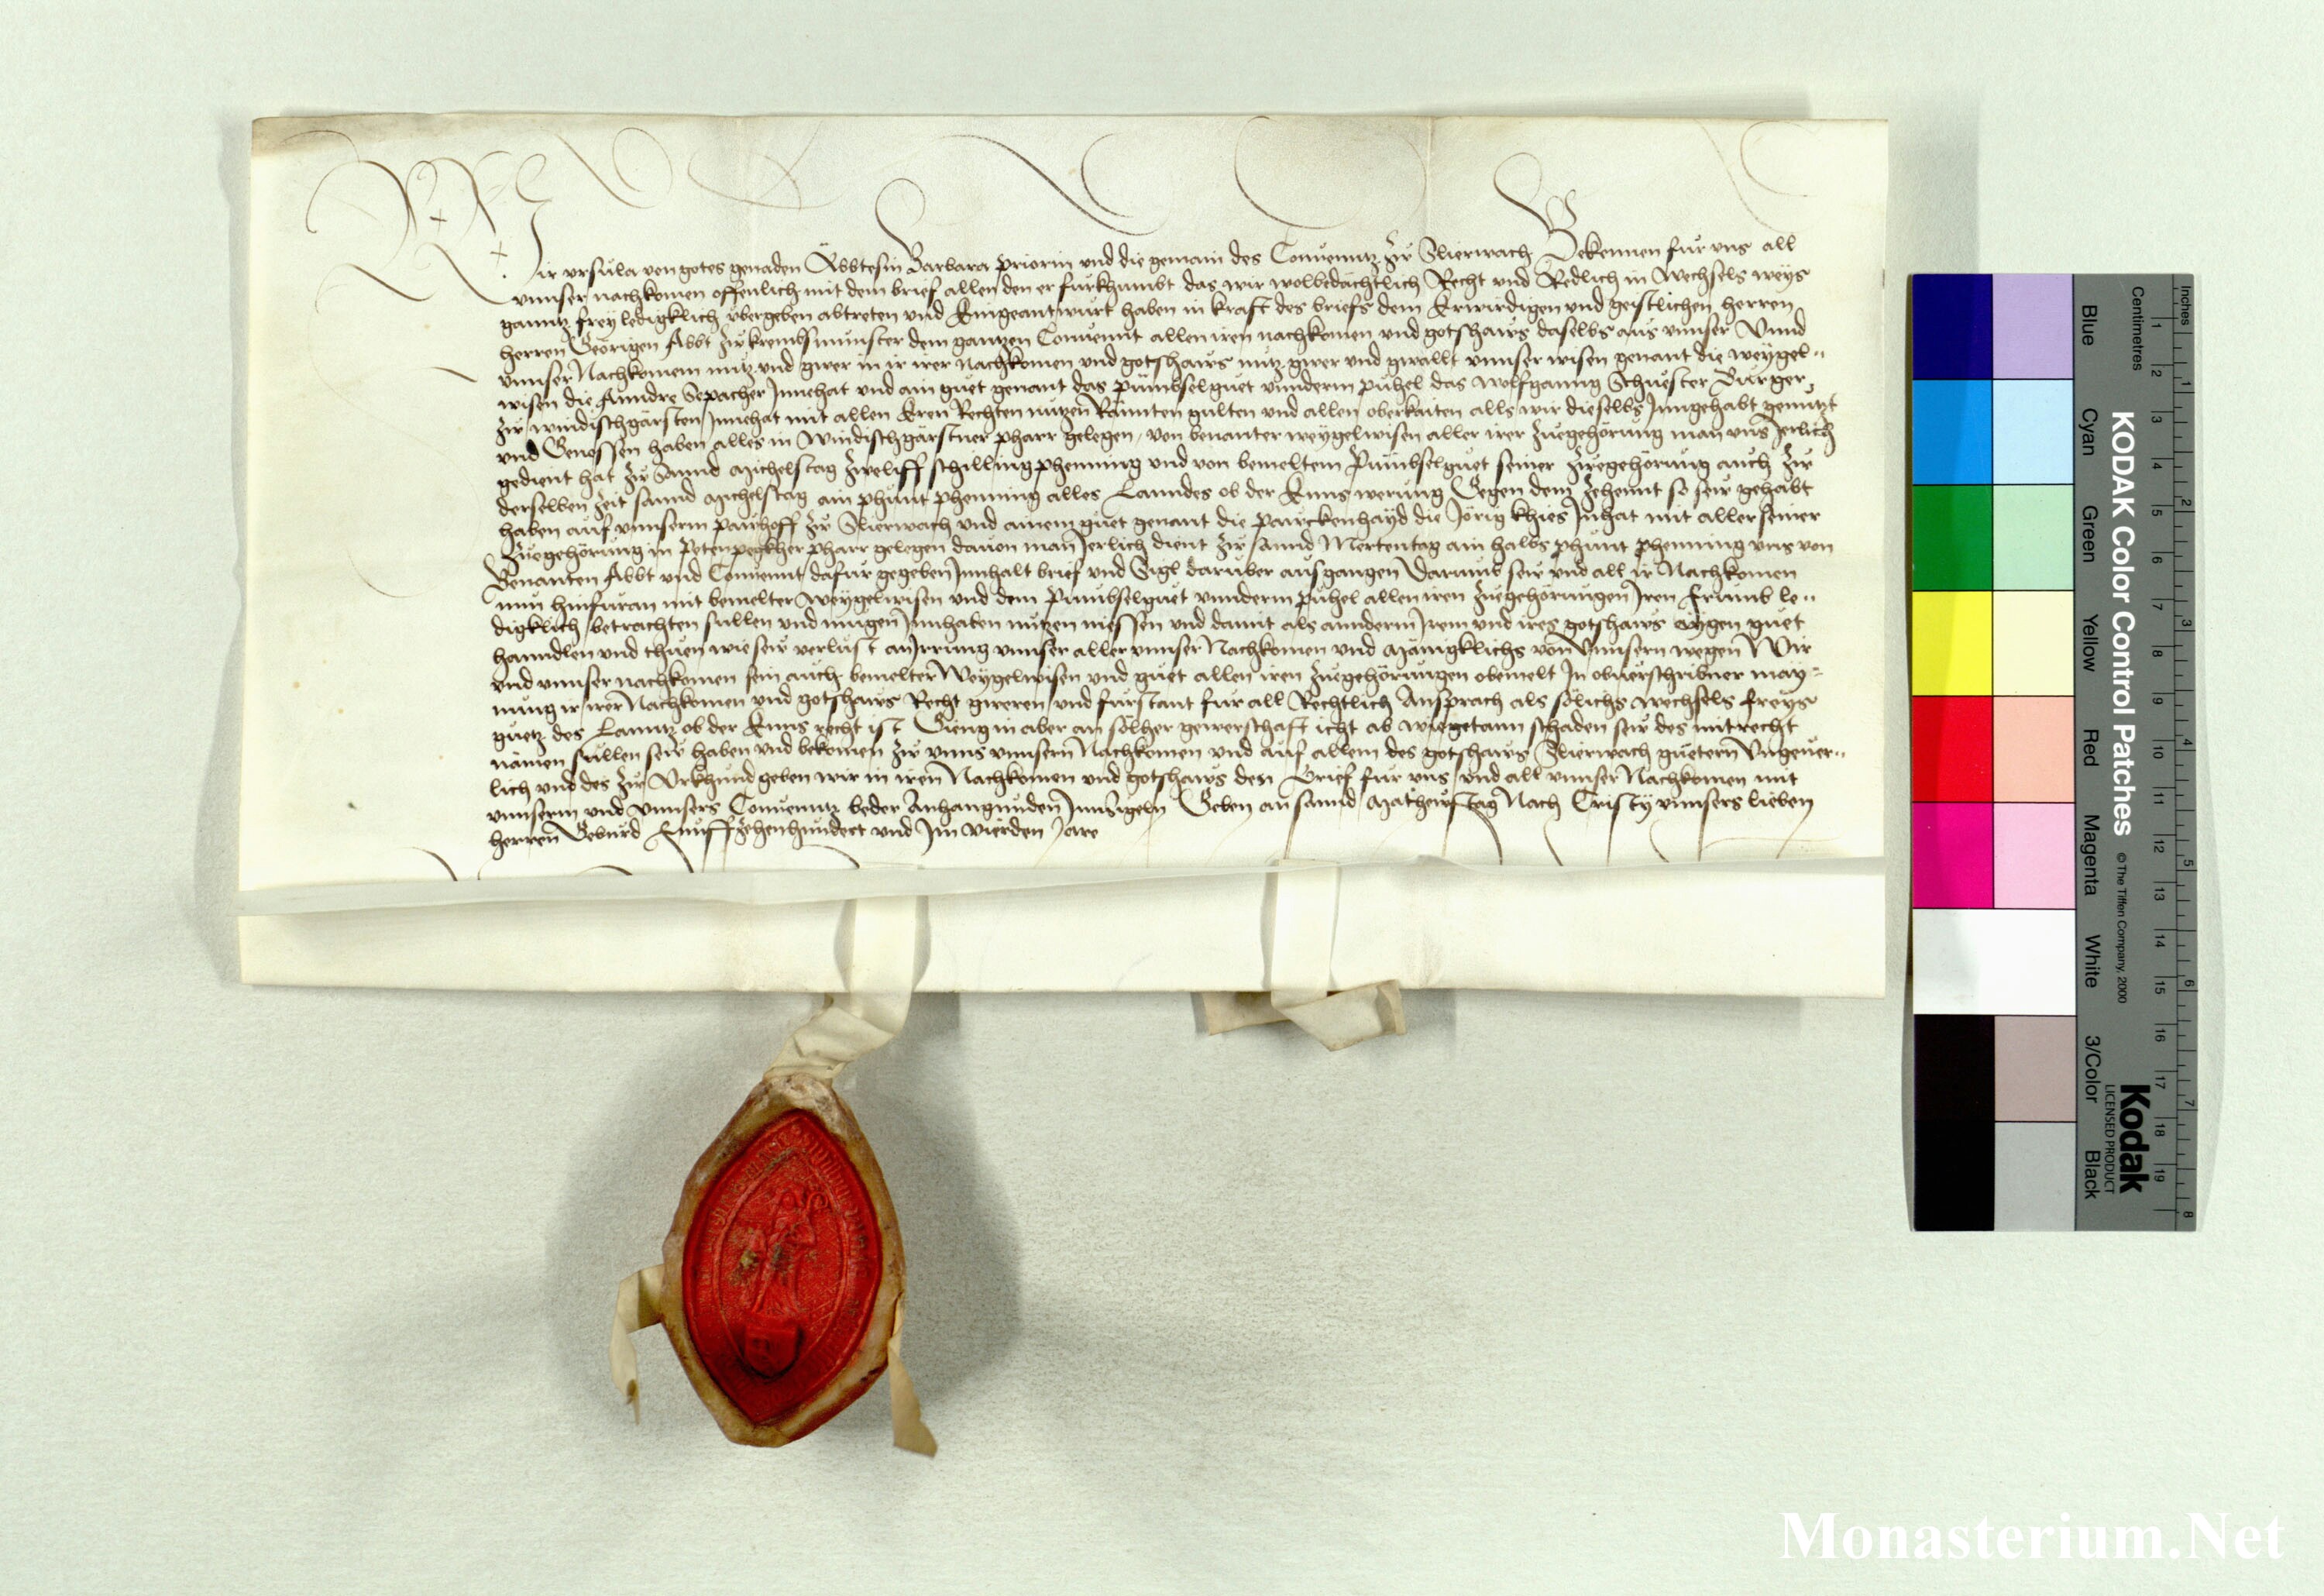 Wir vrsula von gotes genaden Äbbtesin Barbara priorin vnd die gemain des Conuenntz zw Slierwach Bekennen fur vns all
vnnser nachkomen offenlich mit dem brief allen den er furkhumbt das wir wolbedächtlich Recht vnd Redlich in Wechsels weys
ganntz frey ledigklich vbergeben abtreten vnd Eingeantwurt haben in kraft des briefs dem Erwirdigen vnd geistlichen herren
herren Georigen Abbt zw krembsmunster dem ganntzen Conuennt allen iren nachkomen vnd gotshaws daselbs aus vnnser Vnnd
vnnser Nachkomem nutz vnd gwer in ir irer nachkomen vnd gotshaws nutz gwer vnd gwallt vnnser wisen genant die weygel
wisen die Anndre Sepacher Innehat vnd ain guet genant das pumbselguet vnnderm puhel das wolfganng Schuester Burger
zw windischgärsten Innehat mit allen Eren Rechten nutzen Rannten gulten vnd allen oberkaiten alls wir dieselbs Inngehabt genutzt
vnd Genossen haben alles in Windischgärstner pharr gelegen von benanter weygelwisen aller irer zuegehörung man vns Jerlich
gedient hat zw Sannd Michelstag zweliff schilling phenning vnd von bemeltem Pumbselguet seiner zwegehörung auch zw
derselben zeit sannd Michelstag ain phunt phenning alles Lanndes ob der Enns werung Gegen dem zehennt so sew gehabt
haben auf vnnserm pawhoff zw Slierwach vnd ainem guet genant die parckenhayd die Jörig khies Inhat mit aller seiner
zuegehörung in Petenpegkher pharr gelegen dauon man Jerlich dient zw sannd Mertentag ain halbs phunt phenning vns von
Benanten Abbt vnd Conuennt dafur gegeben Innhalt brief vnd Sigl daruber ausgangen Darumb sew vnd all ir Nachkomen
nun hinfuran mit bemelter weygelwisen vnd dem Pumbselguet vnnderm puhel allen iren zuegehörungen Iren frumb le
digklich betrachten sullen vnd mugen Innhaben nutzen niessen vnd damit als annderm Irem vnd ires gotshaws aygen guet
hanndlen vnd thuen wie sew verlust an Irrung vnnser aller vnnser Nachkomen vnd Mänigklichs von Vnnsern wegen Wir
vnd vnnser nachkomen sein auch bemelter Weygelwisen vnd guet allen iren zuegehörungen obemelt In obuerschribner may
nung ir irer Nachkomen vnd gotshaws Recht gweren vnd furstant fur all Rechtlich Ansprach als sölichs wechsels freys
guetz des Lanntz ob der Enns recht ist Gieng in aber an sölher gewerschaft icht ab wiegetann schaden sew des mit recht
nämen sullen sew haben vnd bekomen zw vnns vnnsern Nachkomen vnd auf allem des gotshaws Slierwach guetern Vngeuer
lich vnd des zw Vrkhund geben wir in iren Nachkomen vnd gotshaws den Brief fur vns vnd all vnnser Nachkomen mit
vnnserm vnd vnnsers Conuenntz beder Anhangunden Innsigeln Geben an sannd Matheustag Nach Cristy vnnsers lieben
herren Geburd Funffzehenhundert vnd Im vierden Jare
Inches
Centimetres
KODAK Color Control Patches
© The Tiffen Company, 2000
Kodak
LICENSED PRODUCT
Blue
Cyan
Green
Yellow
Red
Magenta
White
3/Color
Black
1 2 3 4 5 6 7 8 9 10 11 12 13 14 15 16 17 18 19
1 2 3 4 5 6 7 8
Monasterium.Net